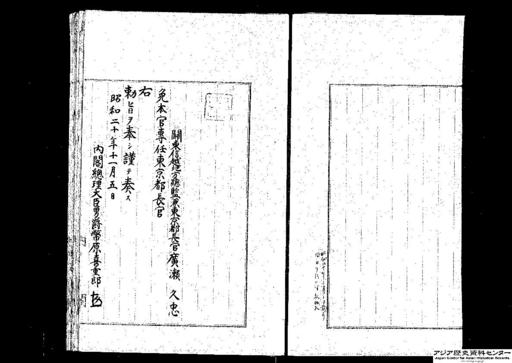 關東信越地方總監兼東京都長官廣瀨久忠
免本官專任東京都長官
右
勅旨ヲ奉シ謹テ奏ス
昭和二十年十一月五日
內閣總理大臣男爵幣原喜重郎
アジア歴史資料センター
Japan Center for Asian Historical Records